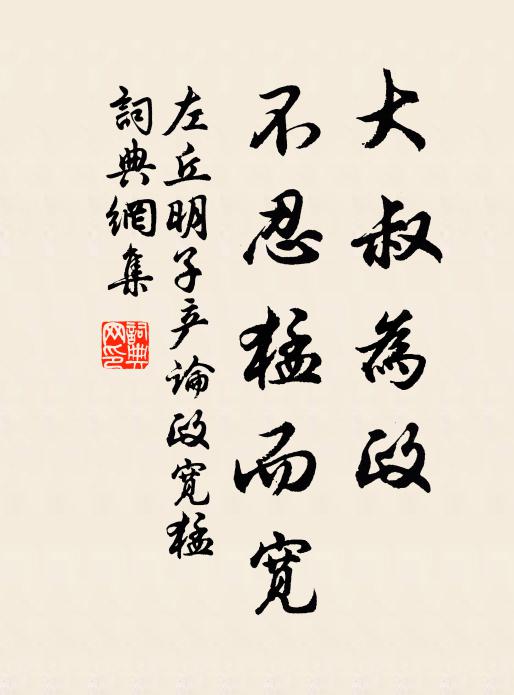 大叔為政
不忍猛而寬
左丘明子产論政寬猛
詞典網集
詞典網印